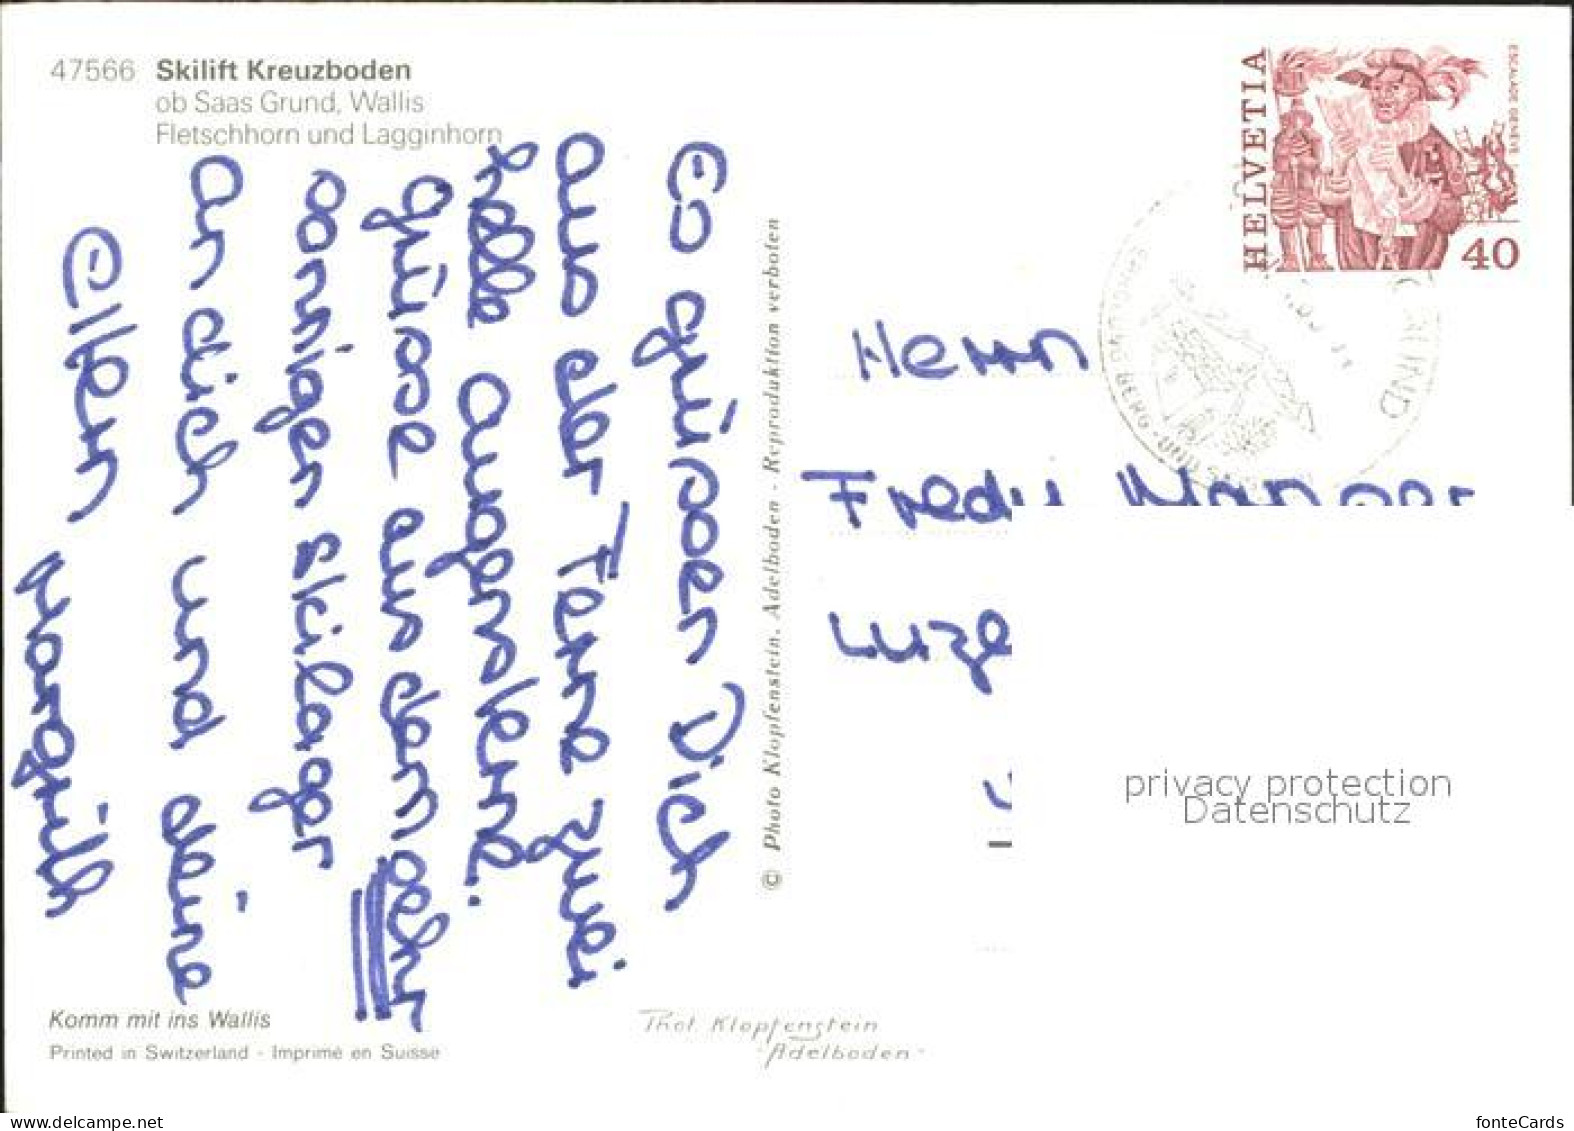 47566 Skilift Kreuzboden
ob Saas Grund, Wallis
Fletschhorn und Lagginhorn
Es grüssen Dich
aus der Ferne zwei
helle Augensterne.
grüsse aus dem sehr
sonnigen Skilager
an dich und deine
Eltern
Margrith
© Photo Klopfenstein, Adelboden - Reproduktion verboten
HELVETIA
ESCALADE GENÈVE
40
GRUND
BERG- UND
Herrn
Fredy
Luze
privacy protection
Datenschutz
Komm mit ins Wallis
Printed in Switzerland - Imprimé en Suisse
Phot. Klopfenstein
Adelboden
www.delcampe.net
fonteCards